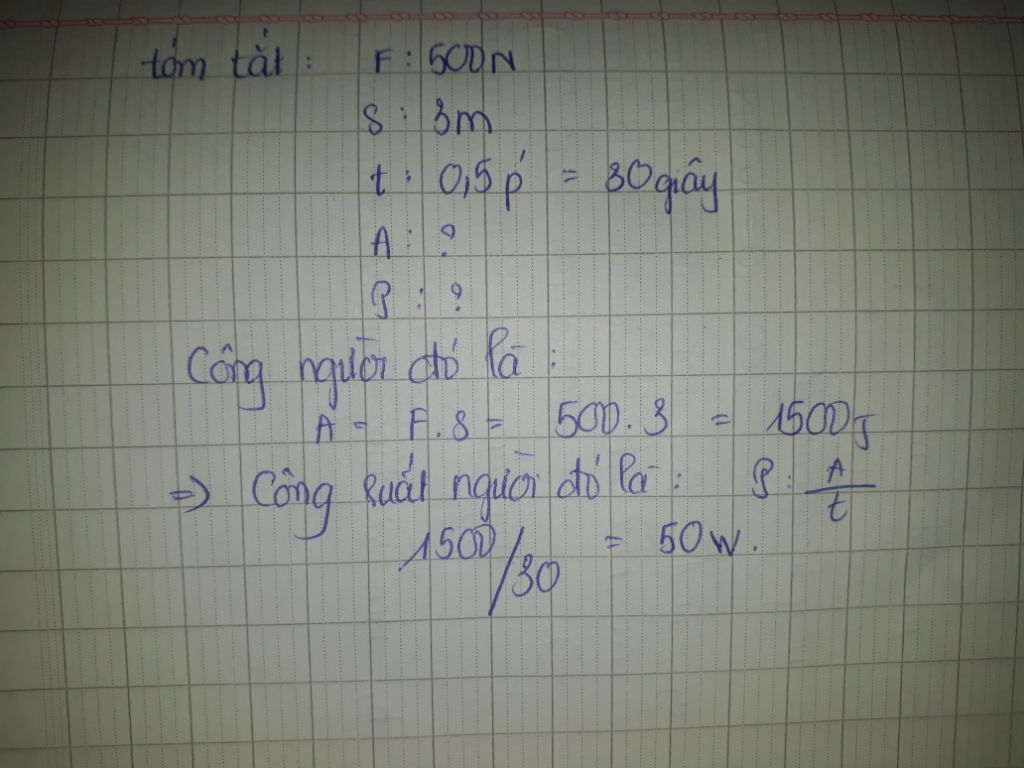 tóm tắt : F : 500N
S : 3m
t : 0,5 p' = 30 giây
A : ?
P : ?
Công người đó là :
A = F.S = 500.3 = 1500J
=> Công suất người đó là : P : A/t
1500/30 = 50 W.